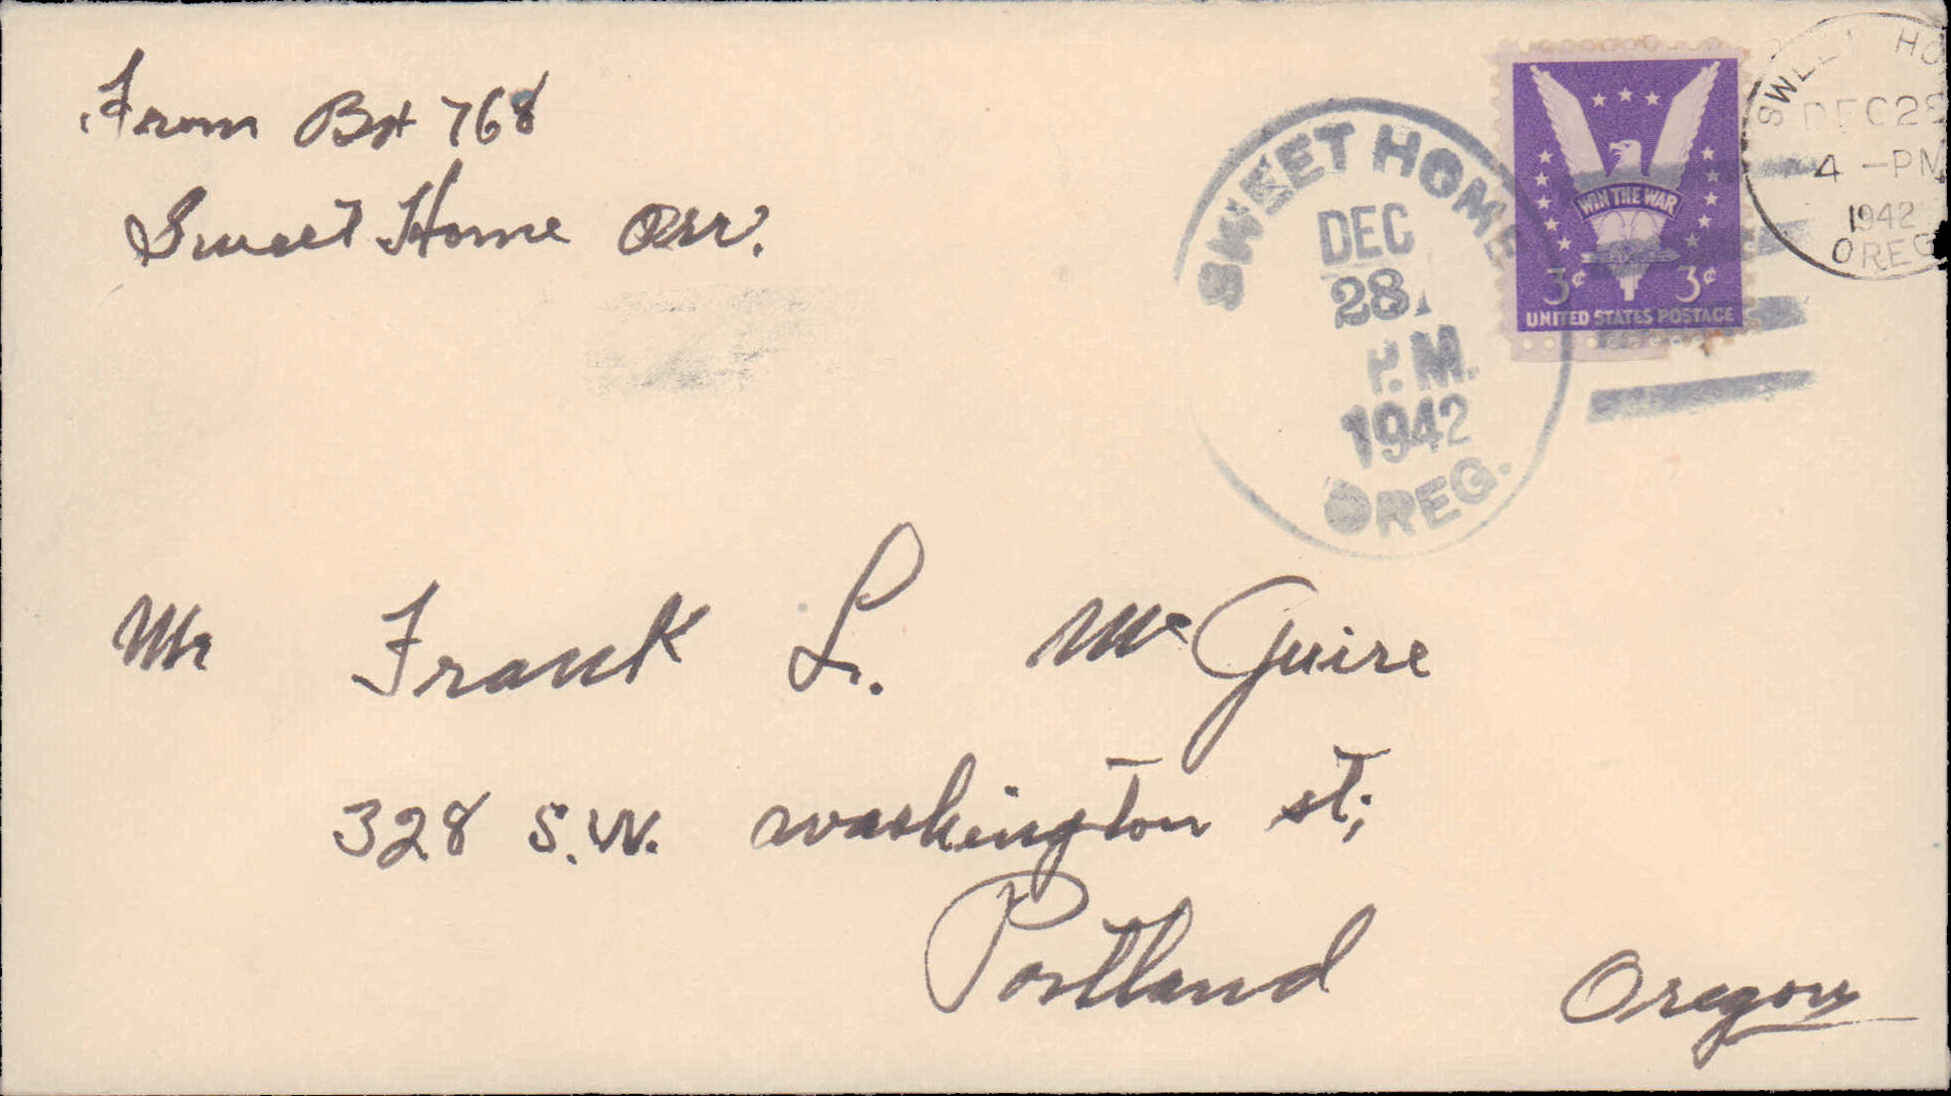 From Box 768
Sweet Home Orr.
SWEET HOME
DEC
28
P.M.
1942
OREG.
WIN THE WAR
3¢ 3¢
UNITED STATES POSTAGE
SWEET HO
DEC 28
4 - PM
1942
OREG
Mr Frank L. McGuire
328 S.W. washington st;
Portland Oregon